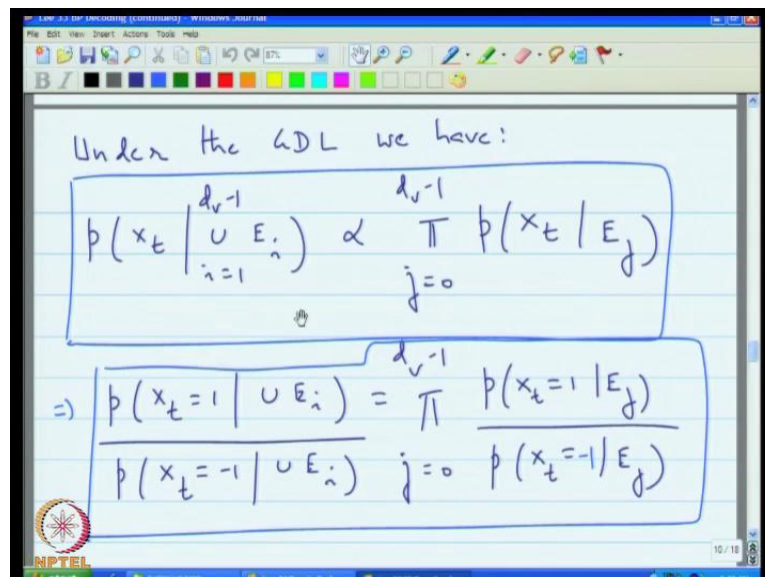 Lec 33 BP Decoding (continued) - Windows Journal
File Edit View Insert Actions Tools Help
87%
B I
Under the GDL we have:
p(x_t | ∪_{i=1}^{d_v-1} E_i) ∝ ∏_{j=0}^{d_v-1} p(x_t | E_j)
=> p(x_t=1 | ∪ E_i) / p(x_t=-1 | ∪ E_i) = ∏_{j=0}^{d_v-1} p(x_t=1 | E_j) / p(x_t=-1 | E_j)
10/18
NPTEL